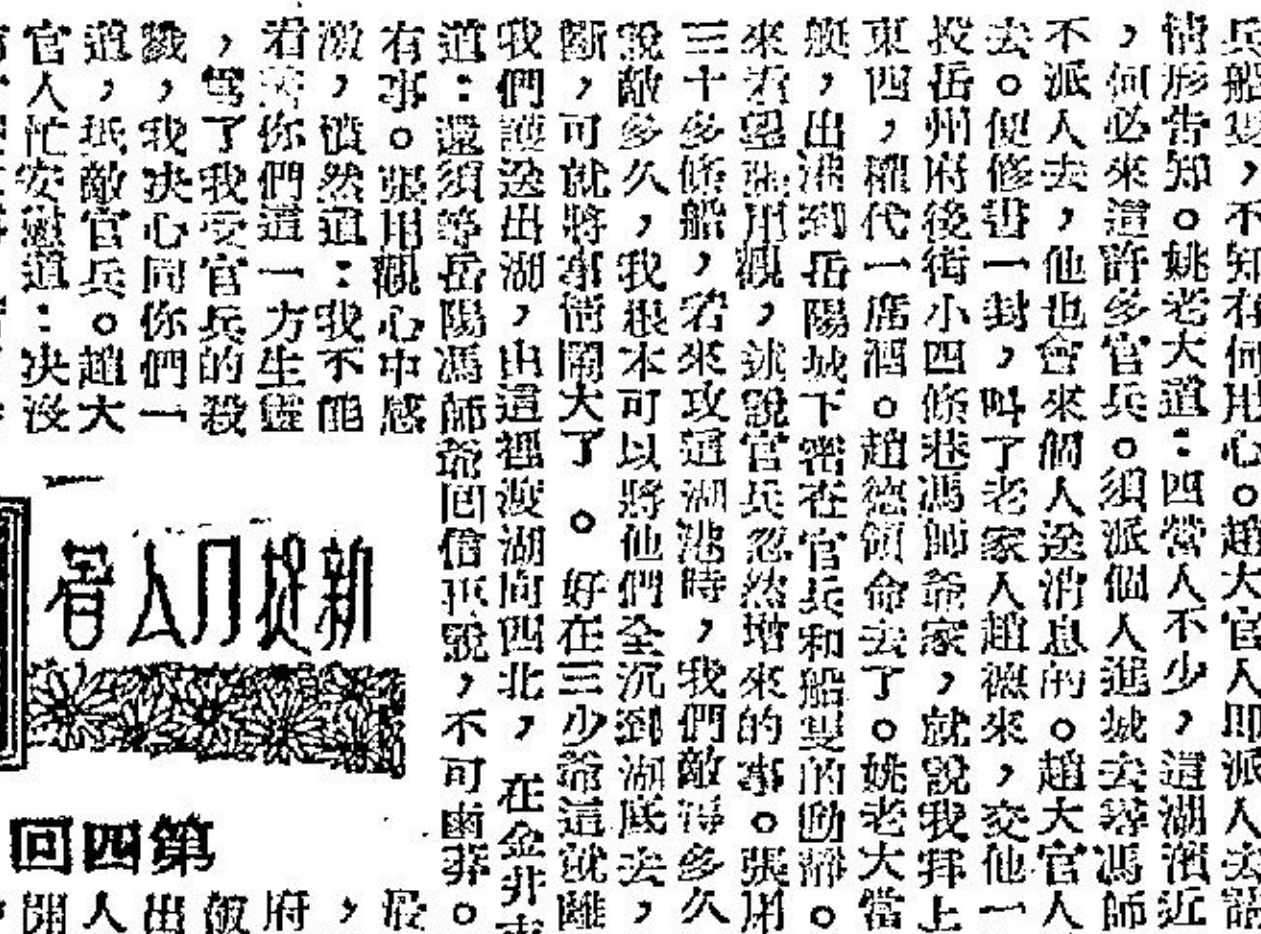 兵船隻，不知存何用心。趙大官人即派人去請
情形告知。姚老大道：四當人不少，這湖濱近
，何必來這許多官兵。須派個人進城去尋馮師
不派人去，他也會來個人送消息的。趙大官人
去。便修書一封，叫了老家人趙德來，交他一
投岳州府後街小四條巷馮師爺家，就說我拜上
東四，權代一席酒。趙德領命去了。姚老大當
艇，出港到岳陽城下密在官兵和船隻的動靜。
來看望張用觀，述說官兵忽然增來的事。張用
三十多條船，若來攻這湖港時，我們敵得多久
說敵多久，我根本可以將他們全沉到湖底去，
斷，可就將事情鬧大了。好在三少爺這就離
我們護送出湖，由這裡渡湖向西北，在金井
道：還須等岳陽馮師爺回信再說，不可鹵莽。
有事。張用觀心中感
激，憤然道：我不能
看著你們這一方生靈
，為了我受官兵的殺
戮，我決心同你們一
道，抵敵官兵。趙大
官人忙安慰道：決沒
新捉刀人著
第四回
最
，
府
飯
出
人
開